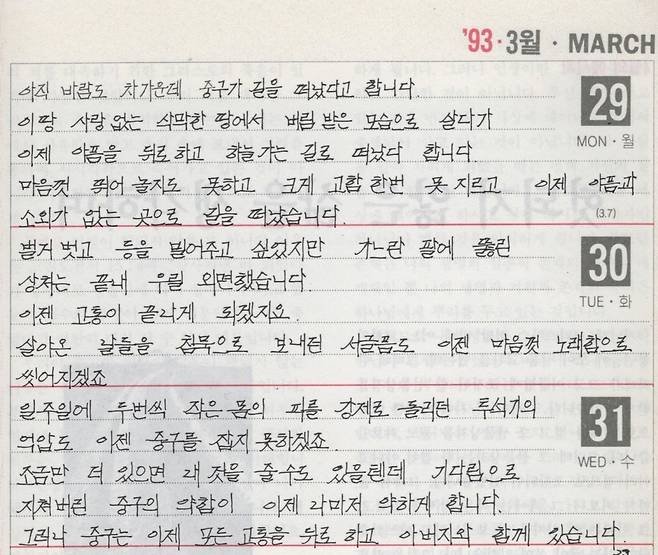 '93·3월·MARCH
아직 바람도 차가운데 중구가 길을 떠났다고 합니다.
이 땅 사랑 없는 삭막한 땅에서 버림 받은 모습으로 살다가
이제 아픔을 뒤로 하고 하늘가는 길로 떠났다 합니다.
마음껏 뛰어 놀지도 못하고 크게 고함 한번 못 지르고 이제 아픔과
소외가 없는 곳으로 길을 떠났습니다.
29
MON·월
(3.7)
벌거 벗고 등을 밀어주고 싶었지만 가느란 팔에 뚫린
상처는 끝내 우릴 외면했습니다.
이젠 고통이 끝나게 되겠지요.
살아온 날들을 침묵으로 보내던 서글픔도 이젠 마음껏 노래함으로
씻어지겠죠
30
TUE·화
일주일에 두번씩 작은 몸의 피를 강제로 돌리던 투석기의
억압도 이젠 중구를 잡지 못하겠죠.
조금만 더 있으면 내 것을 줄 수도 있을텐데 기다림으로
지쳐버린 중구의 약함이 이제 나마저 약하게 합니다.
그러나 중구는 이제 모든 고통을 뒤로 하고 아버지와 함께 있습니다.
31
WED·수